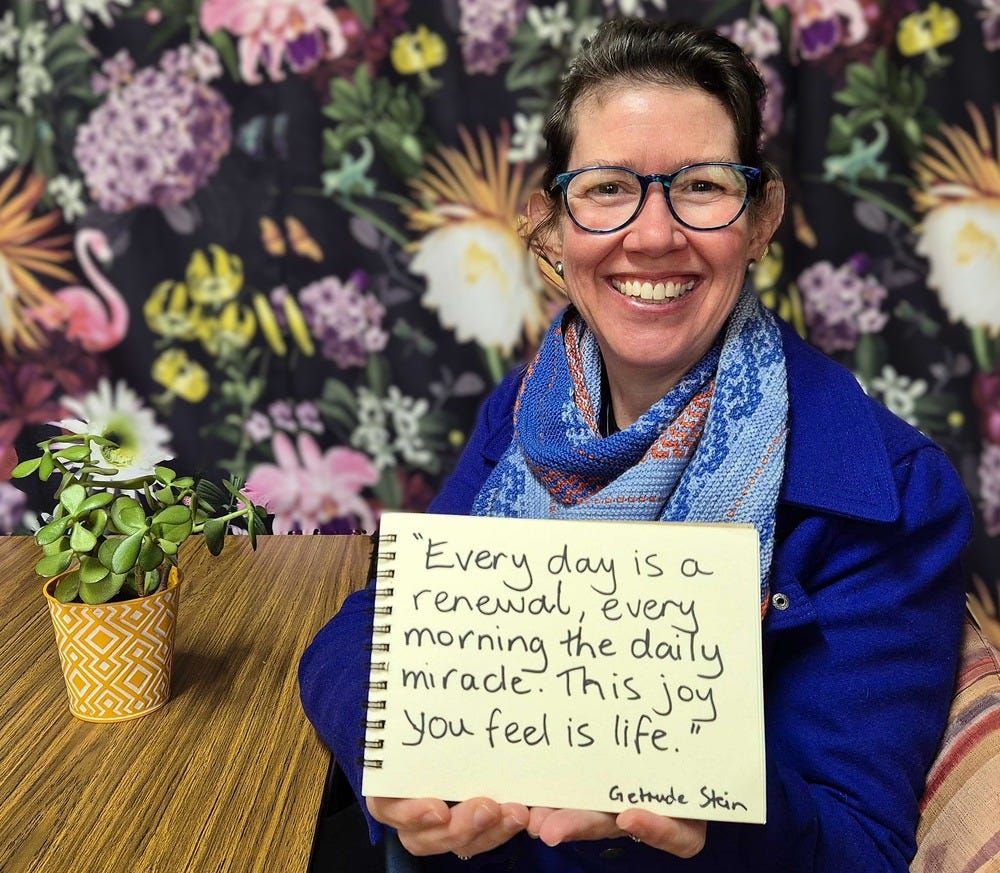 "Every day is a
renewal, every
morning the daily
miracle. This joy
you feel is life."
Getrude Stein